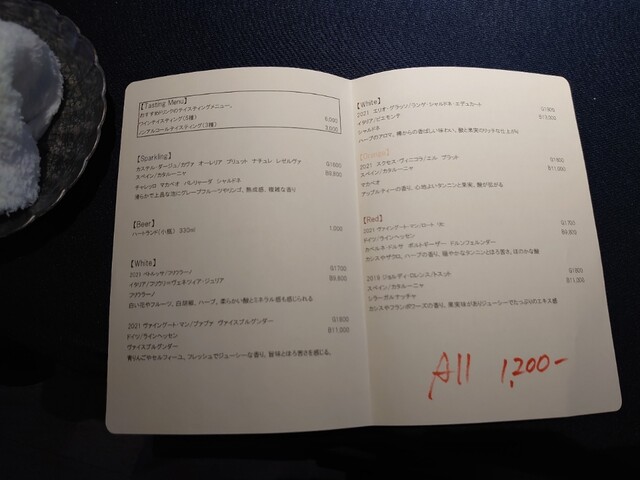 【Tasting Menu】
おすすめドリンクのテイスティングメニュー。
ワインテイスティング(3種) 6,000
ノンアルコールテイスティング(3種) 3,500
【Sparkling】
カステル・ダージュ/カヴァ オーレリア ブリュット ナチュレ レゼルヴァ G1600
スペイン/カタルーニャ B9,800
チャレッロ マカベオ パレリャーダ シャルドネ
滑らかで上品な泡にグレープフルーツやリンゴ、熟成感、複雑な香り
【Beer】
ハートランド(小瓶) 330ml 1,000
【White】
2021 ペトルッサ/フリウラーノ G1700
イタリア/フリウリ=ヴェネツィア・ジュリア B9,800
フリウラーノ
白い花やフルーツ、白胡椒、ハーブ、柔らかい酸とミネラル感も感じられる
2021 ヴァインゲート・マン/ファファ ヴァイスブルグンダー G1800
ドイツ/ラインヘッセン B11,000
ヴァイスブルグンダー
青りんごやセルフィーユ、フレッシュでジューシーな香り、旨味とほろ苦さを感じる。
【White】
2021 エリオ・グラッソ/ランゲ・シャルドネ・エデュカート
イタリア/ピエモンテ
シャルドネ
ハーブのアロマ、樽からの香ばしい味わい、酸と果実のリッチな仕上がり
【Orange】
2021 スクセス・ヴィニコラ/エル ブラット G1800
スペイン/カタルーニャ B11,000
マカベオ
アップルティーの香り、心地よいタンニンと果実、酸が広がる
【Red】
2021 ヴァインゲート・マン/ロート G1700
ドイツ/ラインヘッセン B9,800
カベルネ・ドルサ ポルトギーザー ドルンフェルダー
カシスやザクロ、ハーブの香り、穏やかなタンニンとほろ苦さ、ほのかな酸
2019 ジョルディ・ロレンス/トスット G1800
スペイン/カタルーニャ B11,000
シラー ガルナッチャ
カシスやフランボワーズの香り、果実味がありジューシーでたっぷりのエキス感
All 1,200-